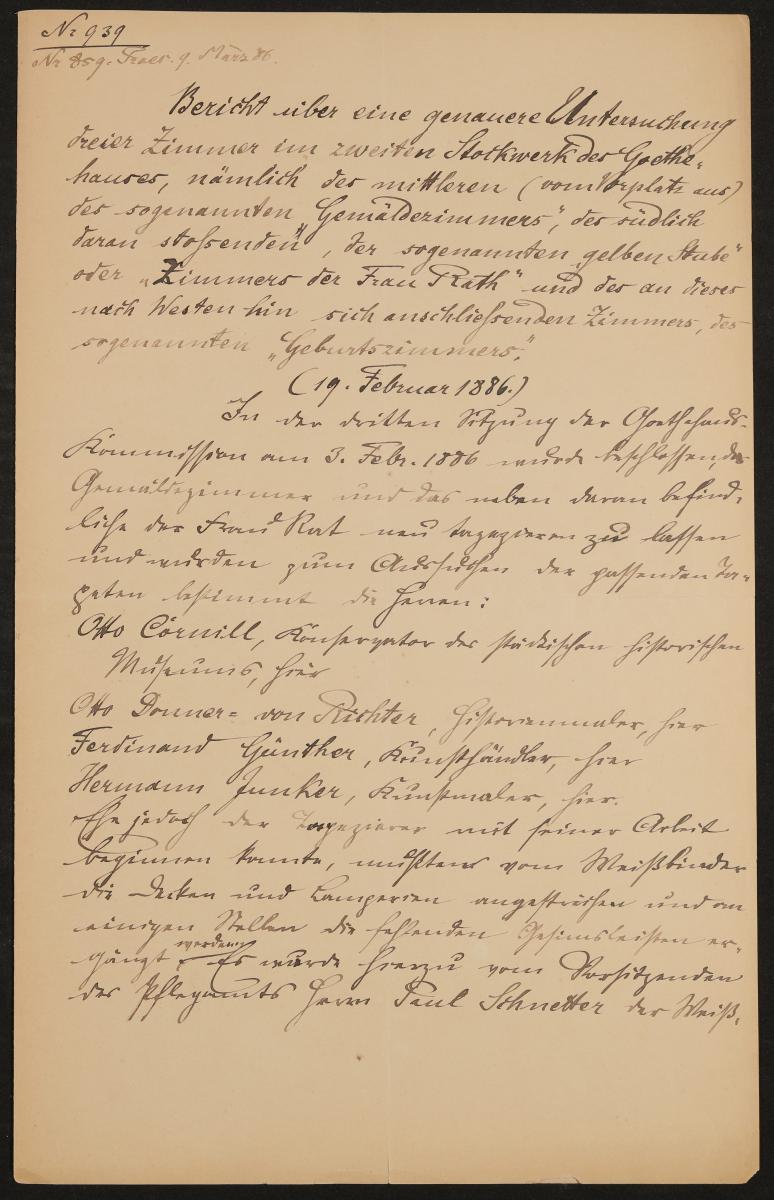 Nr 939
Nr 859. Praes. 9. März 86.
Bericht über eine genauere Untersuchung
dreier Zimmer im zweiten Stockwerk des Goethe-
hauses, nämlich des mittleren (vom Vorplatz aus)
des sogenannten „Gemäldezimmers“, des südlich
daran stoßenden, der sogenannten „gelben Stube“
oder „Zimmers der Frau Rath“ und des an dieses
nach Westen hin sich anschließenden Zimmers, des
sogenannten „Geburtszimmers“.
(19. Februar 1886.)
In der dritten Sitzung der Goethehaus-
Kommission am 3. Febr. 1886 wurde beschlossen, das
Gemäldezimmer und das neben daran befind-
liche der Frau Rat neu tapezieren zu lassen
und wurden zum Aussuchen der passenden Ta-
peten bestimmt die Herren:
Otto Cornill, Konservator des städtischen historischen
Museums, hier
Otto Donner- von Richter, Historienmaler, hier
Ferdinand Günther, Kunsthändler, hier
Hermann Junker, Kunstmaler, hier.
Ehe jedoch der Tapezierer mit seiner Arbeit
beginnen konnte, mußten vom Weißbinder
die Decken und Lamperien angestrichen und an
einigen Stellen die fehlenden Gesimsleisten er-
gänzt werden. Es wurde hierzu vom Vorsitzenden
des Pflegamts Herrn Paul Schnetter der Weiß-